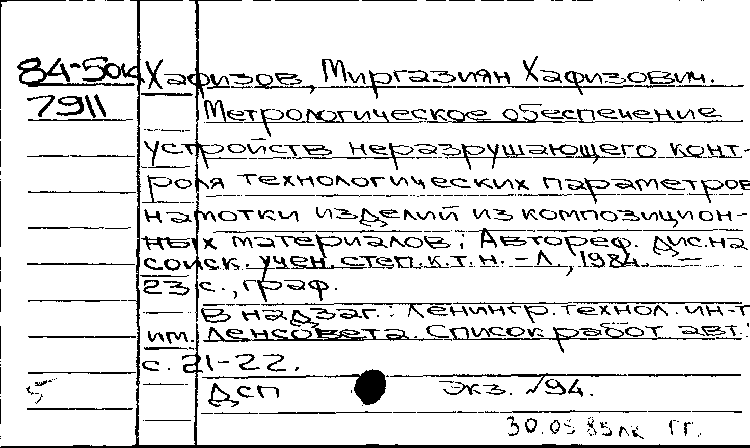 84-50к Хафизов, Миргазиян Хафизович.
7911 Метрологическое обеспечение
устройств неразрушающего конт-
роля технологических параметров
намотки изделий из композицион-
ных материалов: Автореф. дис. на
соиск. учен. степ. к.т.н. - Л., 1984. —
23 с., граф.
В надзаг.: Ленингр. технол. ин-т
им. Ленсовета. Список работ авт.:
с. 21-22.
ДСП экз. №94.
30.05.85 гг.